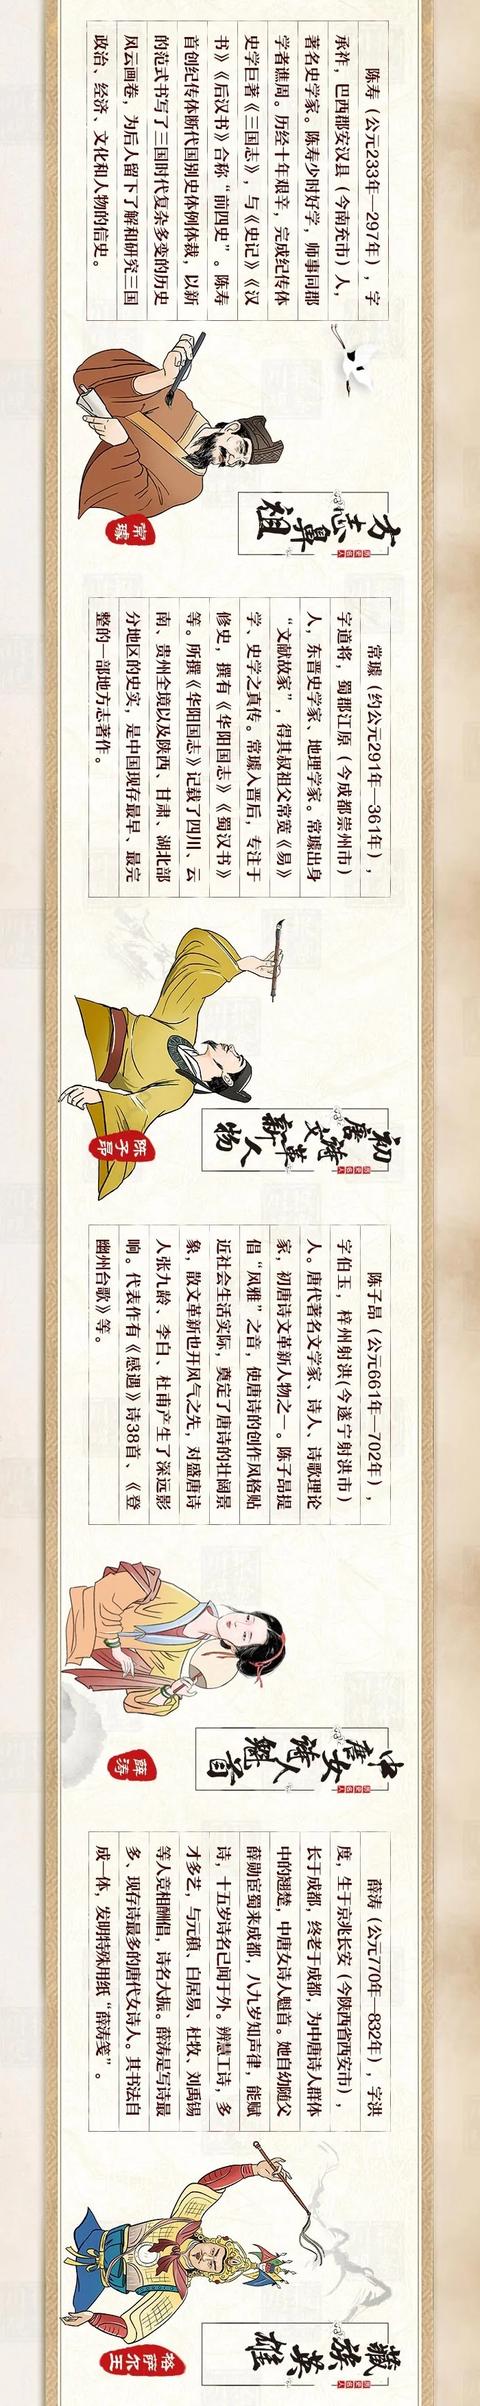 陈寿（公元233年—297年），字
承祚，巴西郡安汉县（今南充市）人，
著名史学家。陈寿少时好学，师事同郡
学者谯周。历经十年艰辛，完成纪传体
史学巨著《三国志》，与《史记》《汉
书》《后汉书》合称“前四史”。陈寿
首创纪传体断代国别史体例体裁，以新
的范式书写了三国时代复杂多变的历史
风云画卷，为后人留下了解和研究三国
政治、经济、文化和人物的信史。
方志鼻祖
历史名人
常璩
常璩（约公元291年—361年），
字道将，蜀郡江原（今成都崇州市）
人，东晋史学家、地理学家。常璩出身
“文献故家”，得其叔祖父常宽《易》
学、史学之真传。常璩入晋后，专注于
修史，撰有《华阳国志》《蜀汉书》
等。所撰《华阳国志》记载了四川、云
南、贵州全境以及陕西、甘肃、湖北部
分地区的史实，是中国现存最早、最完
整的一部地方志著作。
初唐诗文革新人物
历史名人
陈子昂
陈子昂（公元661年—702年），
字伯玉，梓州射洪(今遂宁射洪市）
人。唐代著名文学家、诗人、诗歌理论
家，初唐诗文革新人物之一。陈子昂提
倡“风雅”之音，使唐诗的创作风格贴
近社会生活实际，奠定了唐诗的壮阔景
象，散文革新也开风气之先，对盛唐诗
人张九龄、李白、杜甫产生了深远影
响。代表作有《感遇》诗38首、《登
幽州台歌》等。
中唐女诗人魁首
历史名人
薛涛
薛涛（公元770年—832年），字洪
度，生于京兆长安（今陕西省西安市），
长于成都，终老于成都，为中唐诗人群体
中的翘楚，中唐女诗人魁首。她自幼随父
薛勋臣蜀来成都，八九岁知声律，能赋
诗，十五岁诗名已闻于外。辨慧工诗，多
才多艺，与元稹、白居易、杜牧、刘禹锡
等人竞相酬唱，诗名大振。薛涛是写诗最
多、现存诗最多的唐代女诗人。其书法自
成一体，发明特殊用纸“薛涛笺”。
藏族英雄
历史名人
格萨尔王